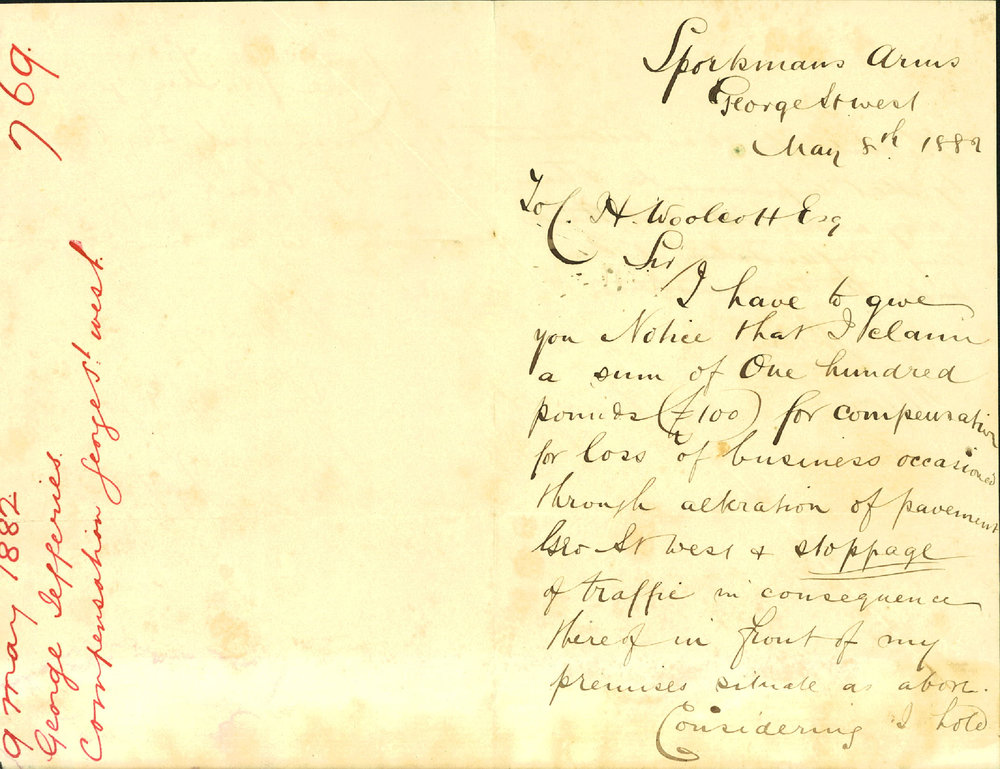 769.
9 May 1882
George Jefferies.
Compensation George St. west.
Sportsmans Arms
George St West
May 8th 1882
To C. H. Woolcott Esq
Sir
I have to give
you Notice that I claim
a sum of One hundred
pounds (£100) for compensation
for loss of business occasioned
through alteration of pavement
Geo St West & stoppage
of traffic in consequence
thereof in front of my
premises situate as above.
Considering I hold